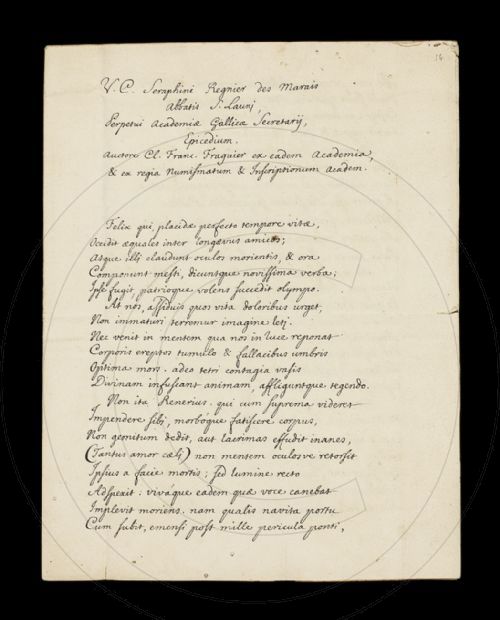 16
V. C. Seraphini Regnier des Marais
Abbatis S. Launj,
Perpetui Academiæ Gallicæ Secretarij,
Epicedium.
Auctore Cl. Franc. Fraguier ex eadem Academia,
& ex regia Numismatum & Inscriptionum Academ.
Felix qui placidæ perfecto tempore vitæ,
Occidit æquales inter longævus amicos;
Atque illj claudunt oculos morientis, & ora
Componunt mæsti, dicuntque novissima verba;
Ipse fugit, patrioque volens succedit olympo.
At nos, assiduis quos vita doloribus urget,
Non immaturi terremur imagine letj.
Nec venit in mentem qua nos in luce reponat
Corporis ereptos tumulo & fallacibus umbris
Optima mors. adeo tetri contagia vasis
Divinam infuscant animam, affliguntque tegendo.
Non ita Renerius. qui cum suprema videret
Impendere sibj, morbóque fatiscere corpus,
Non gemitum dedit, aut lacrimas effudit inanes,
(Tantus amor cælj) non mentem oculosve retorsit
Ipsius a facie mortis; sed lumine recto
Adspexit: viváque eadem quæ voce canebat
Implevit moriens. nam qualis navita portu
Cum subit, emensi post mille pericula ponti,